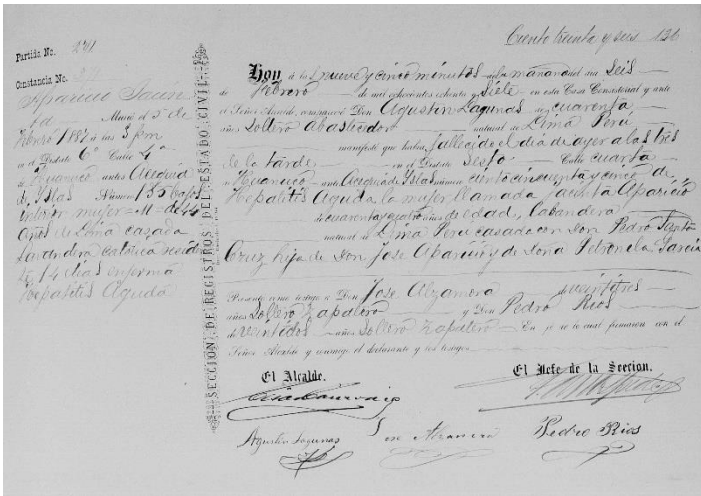 Ciento treinta y seis 136
Partida No. 271
Constancia No. 271
Aparicio Jacin
ta — Murió el 5 de
Febrero 1887 á las 3 pm
en el Distrito 6º Calle 4ª
de Huanuco antes Acequia
de Yslas Número 155 bajos
interior mujer — M — de 44
años de Lima casada
lavandera católica
14 dias enferma
Hepatitis Aguda
SECCIÓN DE REGISTROS DEL ESTADO CIVIL
Hoy á las nueve y cinco minutos de la mañana del dia Seis
de Febrero de mil ochocientos ochenta y Siete en esta Casa Consistorial y ante
el Señor Alcalde, compareció Don Agustin Lagunas de cuarenta
años Soltero Abastecedor natural de Lima Perú
manifestó que habia fallecido el dia de ayer a las tres
de la tarde en el Distrito Sesto Calle cuarta
Huanuco antes Acequia de Yslas número ciento cincuenta y cinco de
Hepatitis Aguda la mujer llamada Jacinta Aparicio
de cuarenta y cuatro años de edad, Labandera
natural de Lima Peru casada con Don Pedro Santa
Cruz hija de Don Jose Aparicio y de Doña Petronila Garcia
Presente como testigo á Don Jose Alzamora de veintitres
años Soltero Zapatero y Don Pedro Rios
de veintidos años Soltero Zapatero En fe de lo cual firmaron con el
Señor Alcalde y conmigo el declarante y los testigos
El Alcalde.
El Jefe de la Seccion.
Agustin Lagunas
Pedro Rios